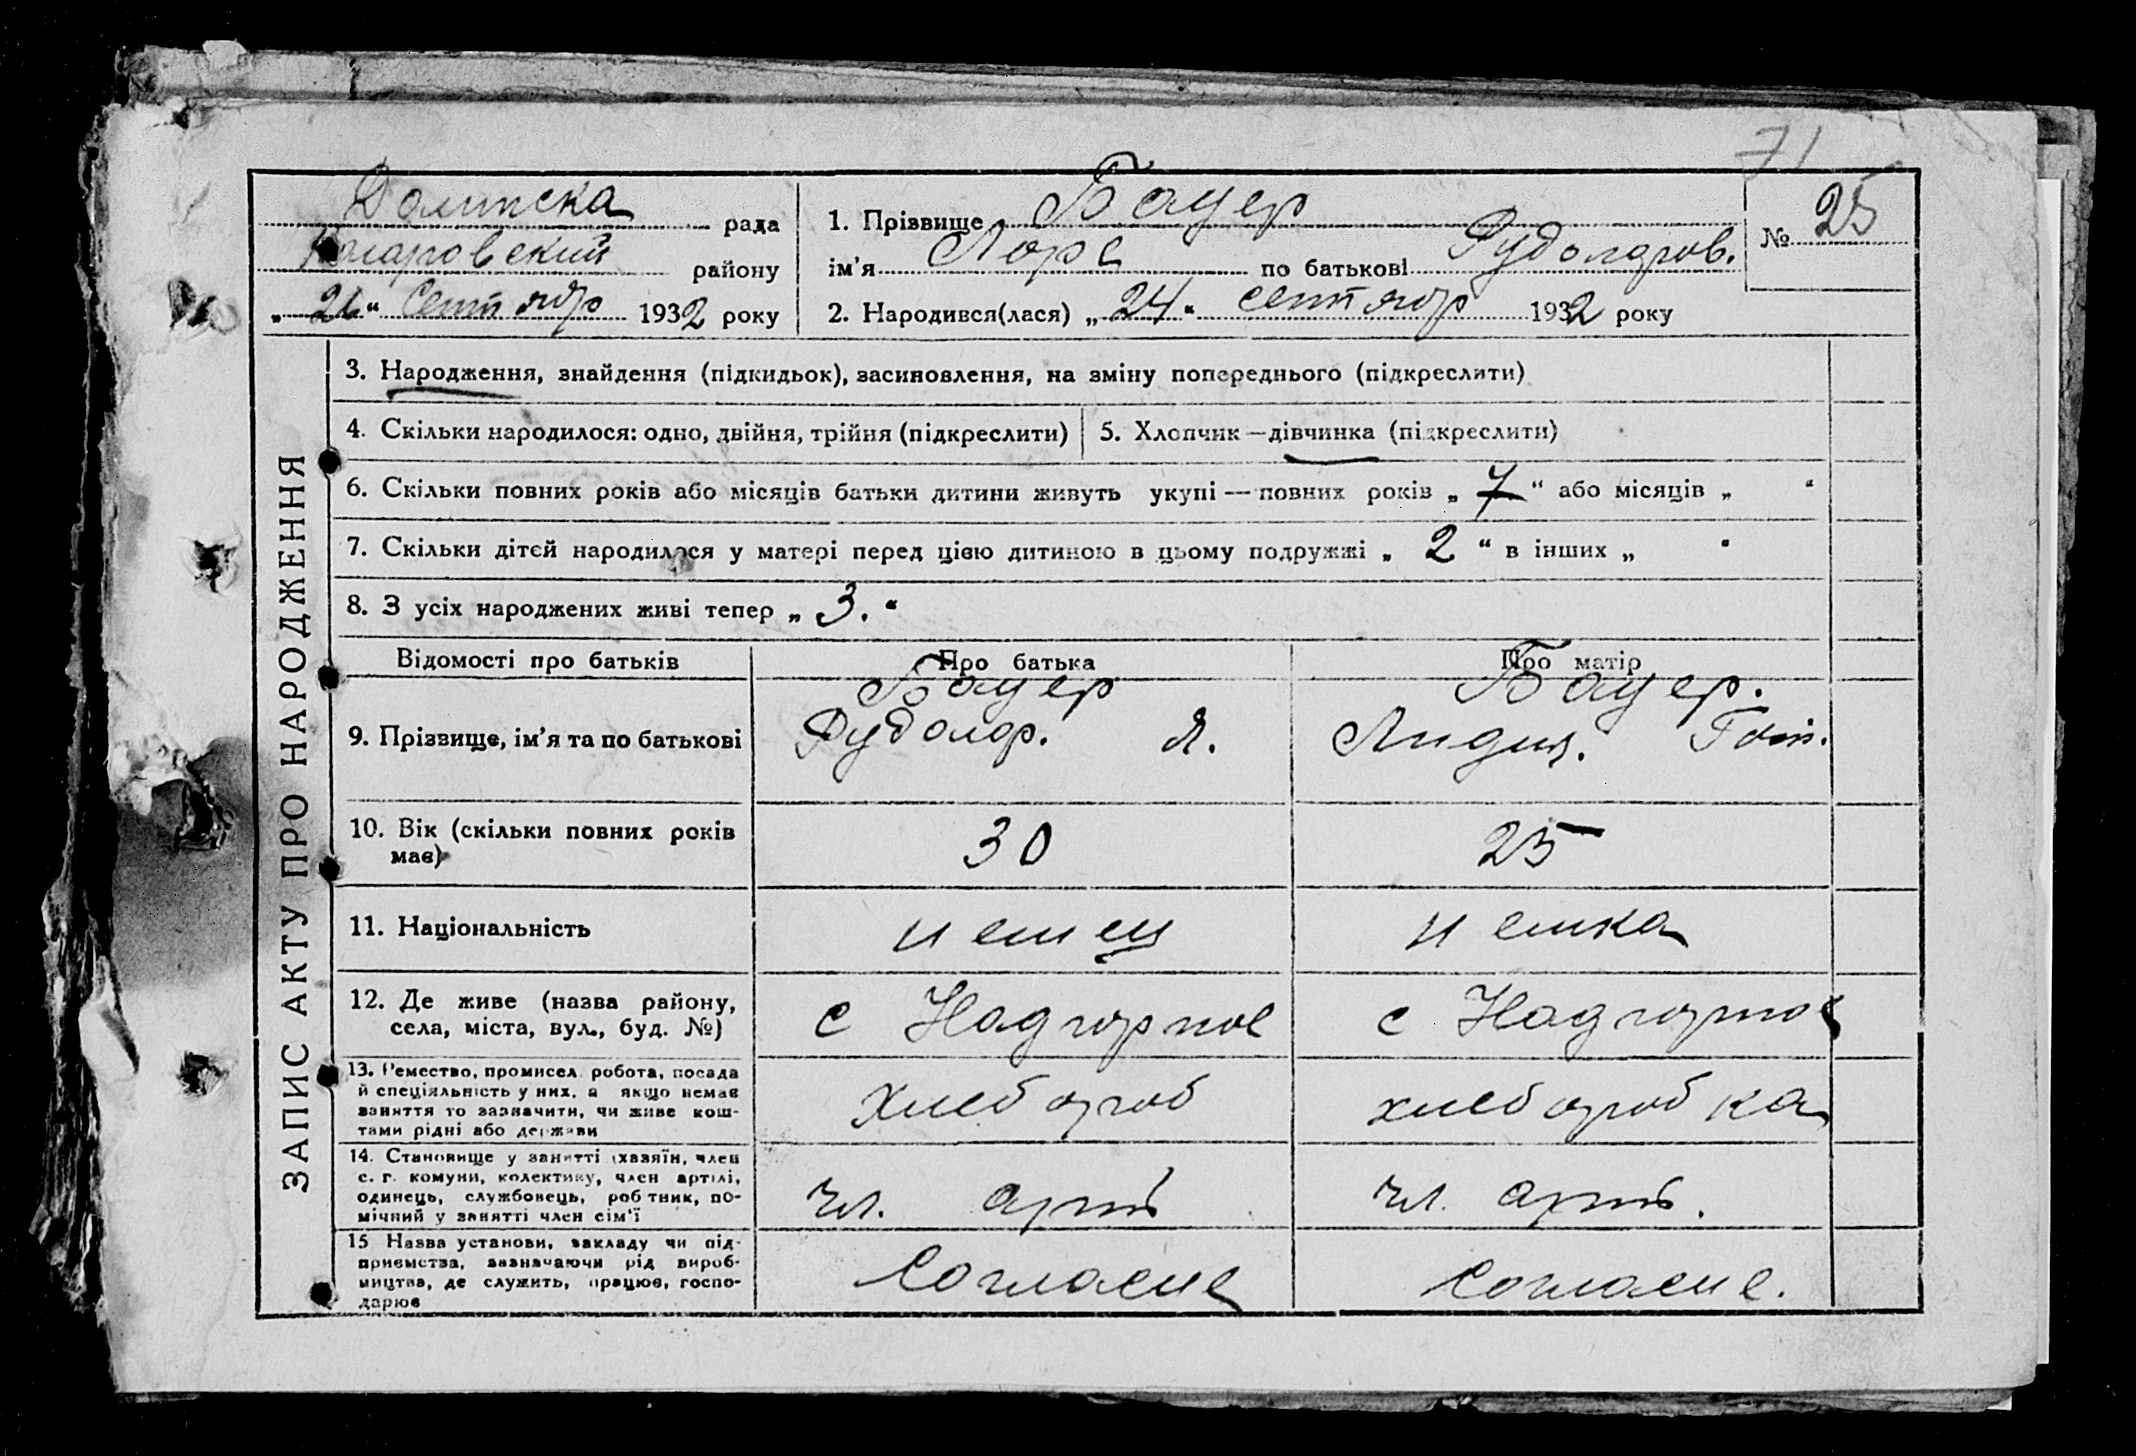 71
Долинска рада
районy
„ “ Сентябр 1932 року
1. Прізвище Бауер
ім’я Лоре по батькові Рудольфов.
№ 25
2. Народився(лася) „ 24 “ сентябр 1932 року
ЗАПИС АКТУ ПРО НАРОДЖЕННЯ
3. Народження, знайдення (підкидьок), засиновлення, на зміну попереднього (підкреслити)
4. Скільки народилося: одно, двійня, трійня (підкреслити)
5. Хлопчик—дівчинка (підкреслити)
6. Скільки повних років або місяців батьки дитини живуть укупі — повних років „ 7 “ або місяців „ “
7. Скільки дітей народилося у матері перед цією дитиною в цьому подружжі „ 2 “ в інших „ “
8. З усіх народжених живі тепер „ 3. “
Відомості про батьків
Про батька
Про матір
9. Прізвище, ім’я та по батькові
Бауер
Рудольф. Я.
Бауер.
Лидия. Гот.
10. Вік (скільки повних років
має)
30
25
11. Національність
немец
немка
12. Де живе (назва району,
села, міста, вул., буд. №)
с Надгорное
с Надгорное
13. Ремество, промисел, робота, посада
й спеціяльність у них, а якщо немає
заняття то зазначити, чи живе кош-
тами рідні або держави
хлебороб
хлеборобка
14. Становище у занятті (хазяїн, член
с. г. комуни, колективу, член артілі,
одинець, службовець, робітник, по-
мічний у занятті член сім’ї
чл. арт
чл. арт.
15 Назва установи, закладу чи під-
приємства, зазначаючи рід вироб-
ництва, де служить, працює, госпо-
дарює
Согласие
Согласие.